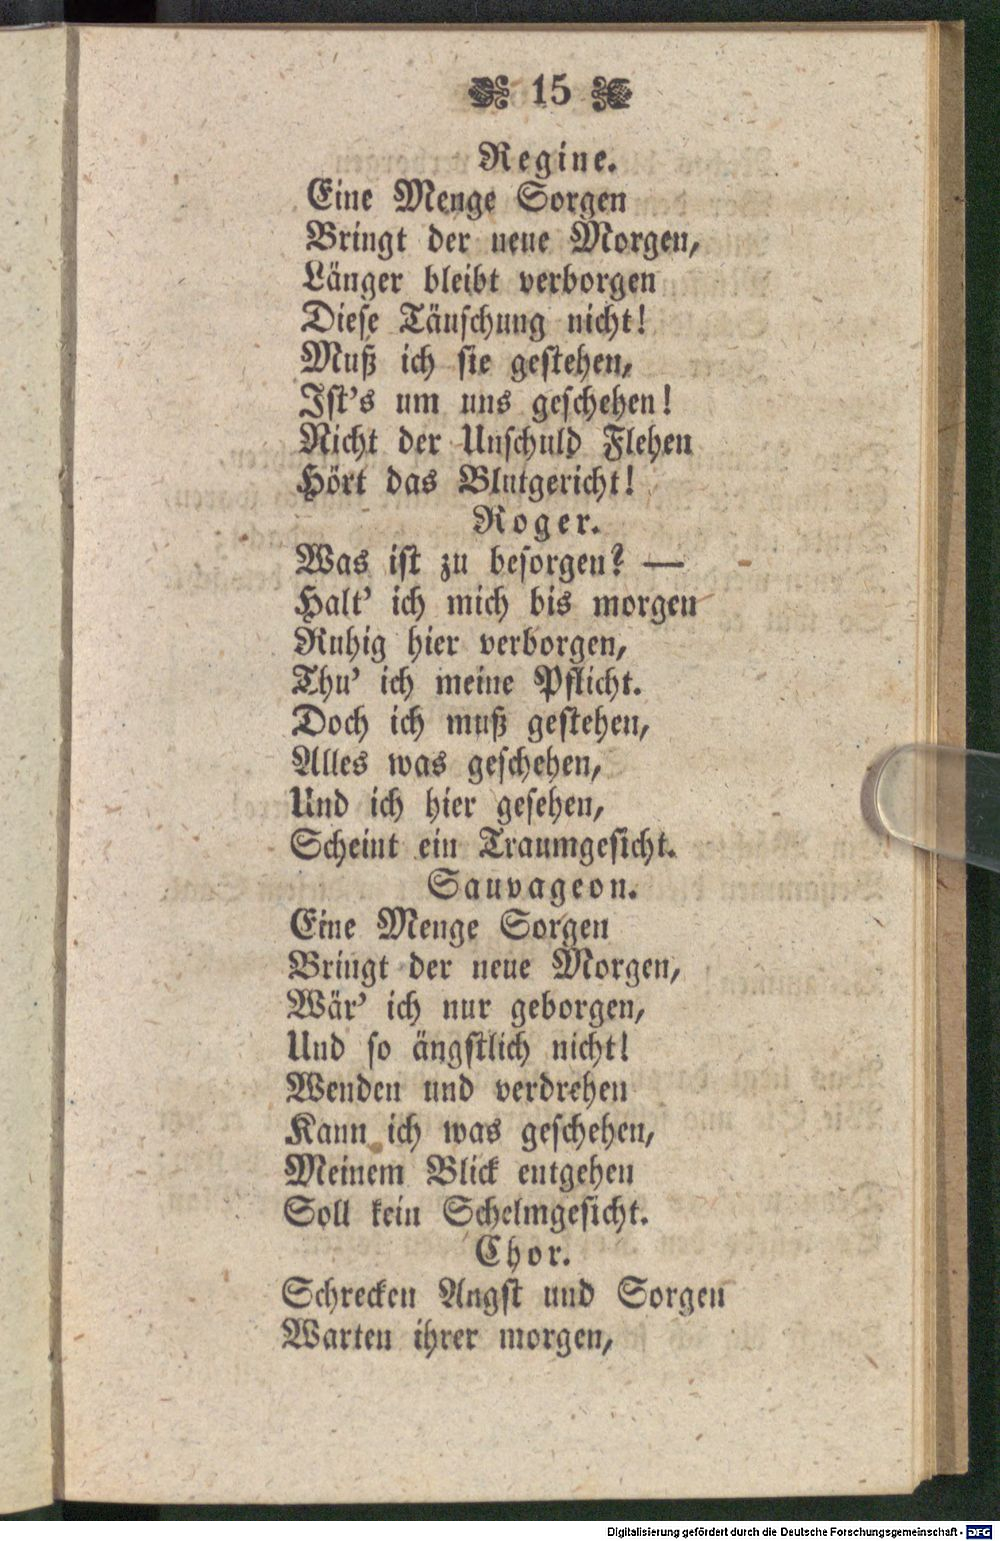 15
Regine.
Eine Menge Sorgen
Bringt der neue Morgen,
Länger bleibt verborgen
Diese Täuschung nicht!
Muß ich sie gestehen,
Ist's um uns geschehen!
Nicht der Unschuld Flehen
Hört das Blutgericht!
Roger.
Was ist zu besorgen? —
Halt' ich mich bis morgen
Ruhig hier verborgen,
Thu' ich meine Pflicht.
Doch ich muß gestehen,
Alles was geschehen,
Und ich hier gesehen,
Scheint ein Traumgesicht.
Sauvageon.
Eine Menge Sorgen
Bringt der neue Morgen,
Wär' ich nur geborgen,
Und so ängstlich nicht!
Wenden und verdrehen
Kann ich was geschehen,
Meinem Blick entgehen
Soll kein Schelmgesicht.
Chor.
Schrecken Angst und Sorgen
Warten ihrer morgen,
Digitalisierung gefördert durch die Deutsche Forschungsgemeinschaft - DFG